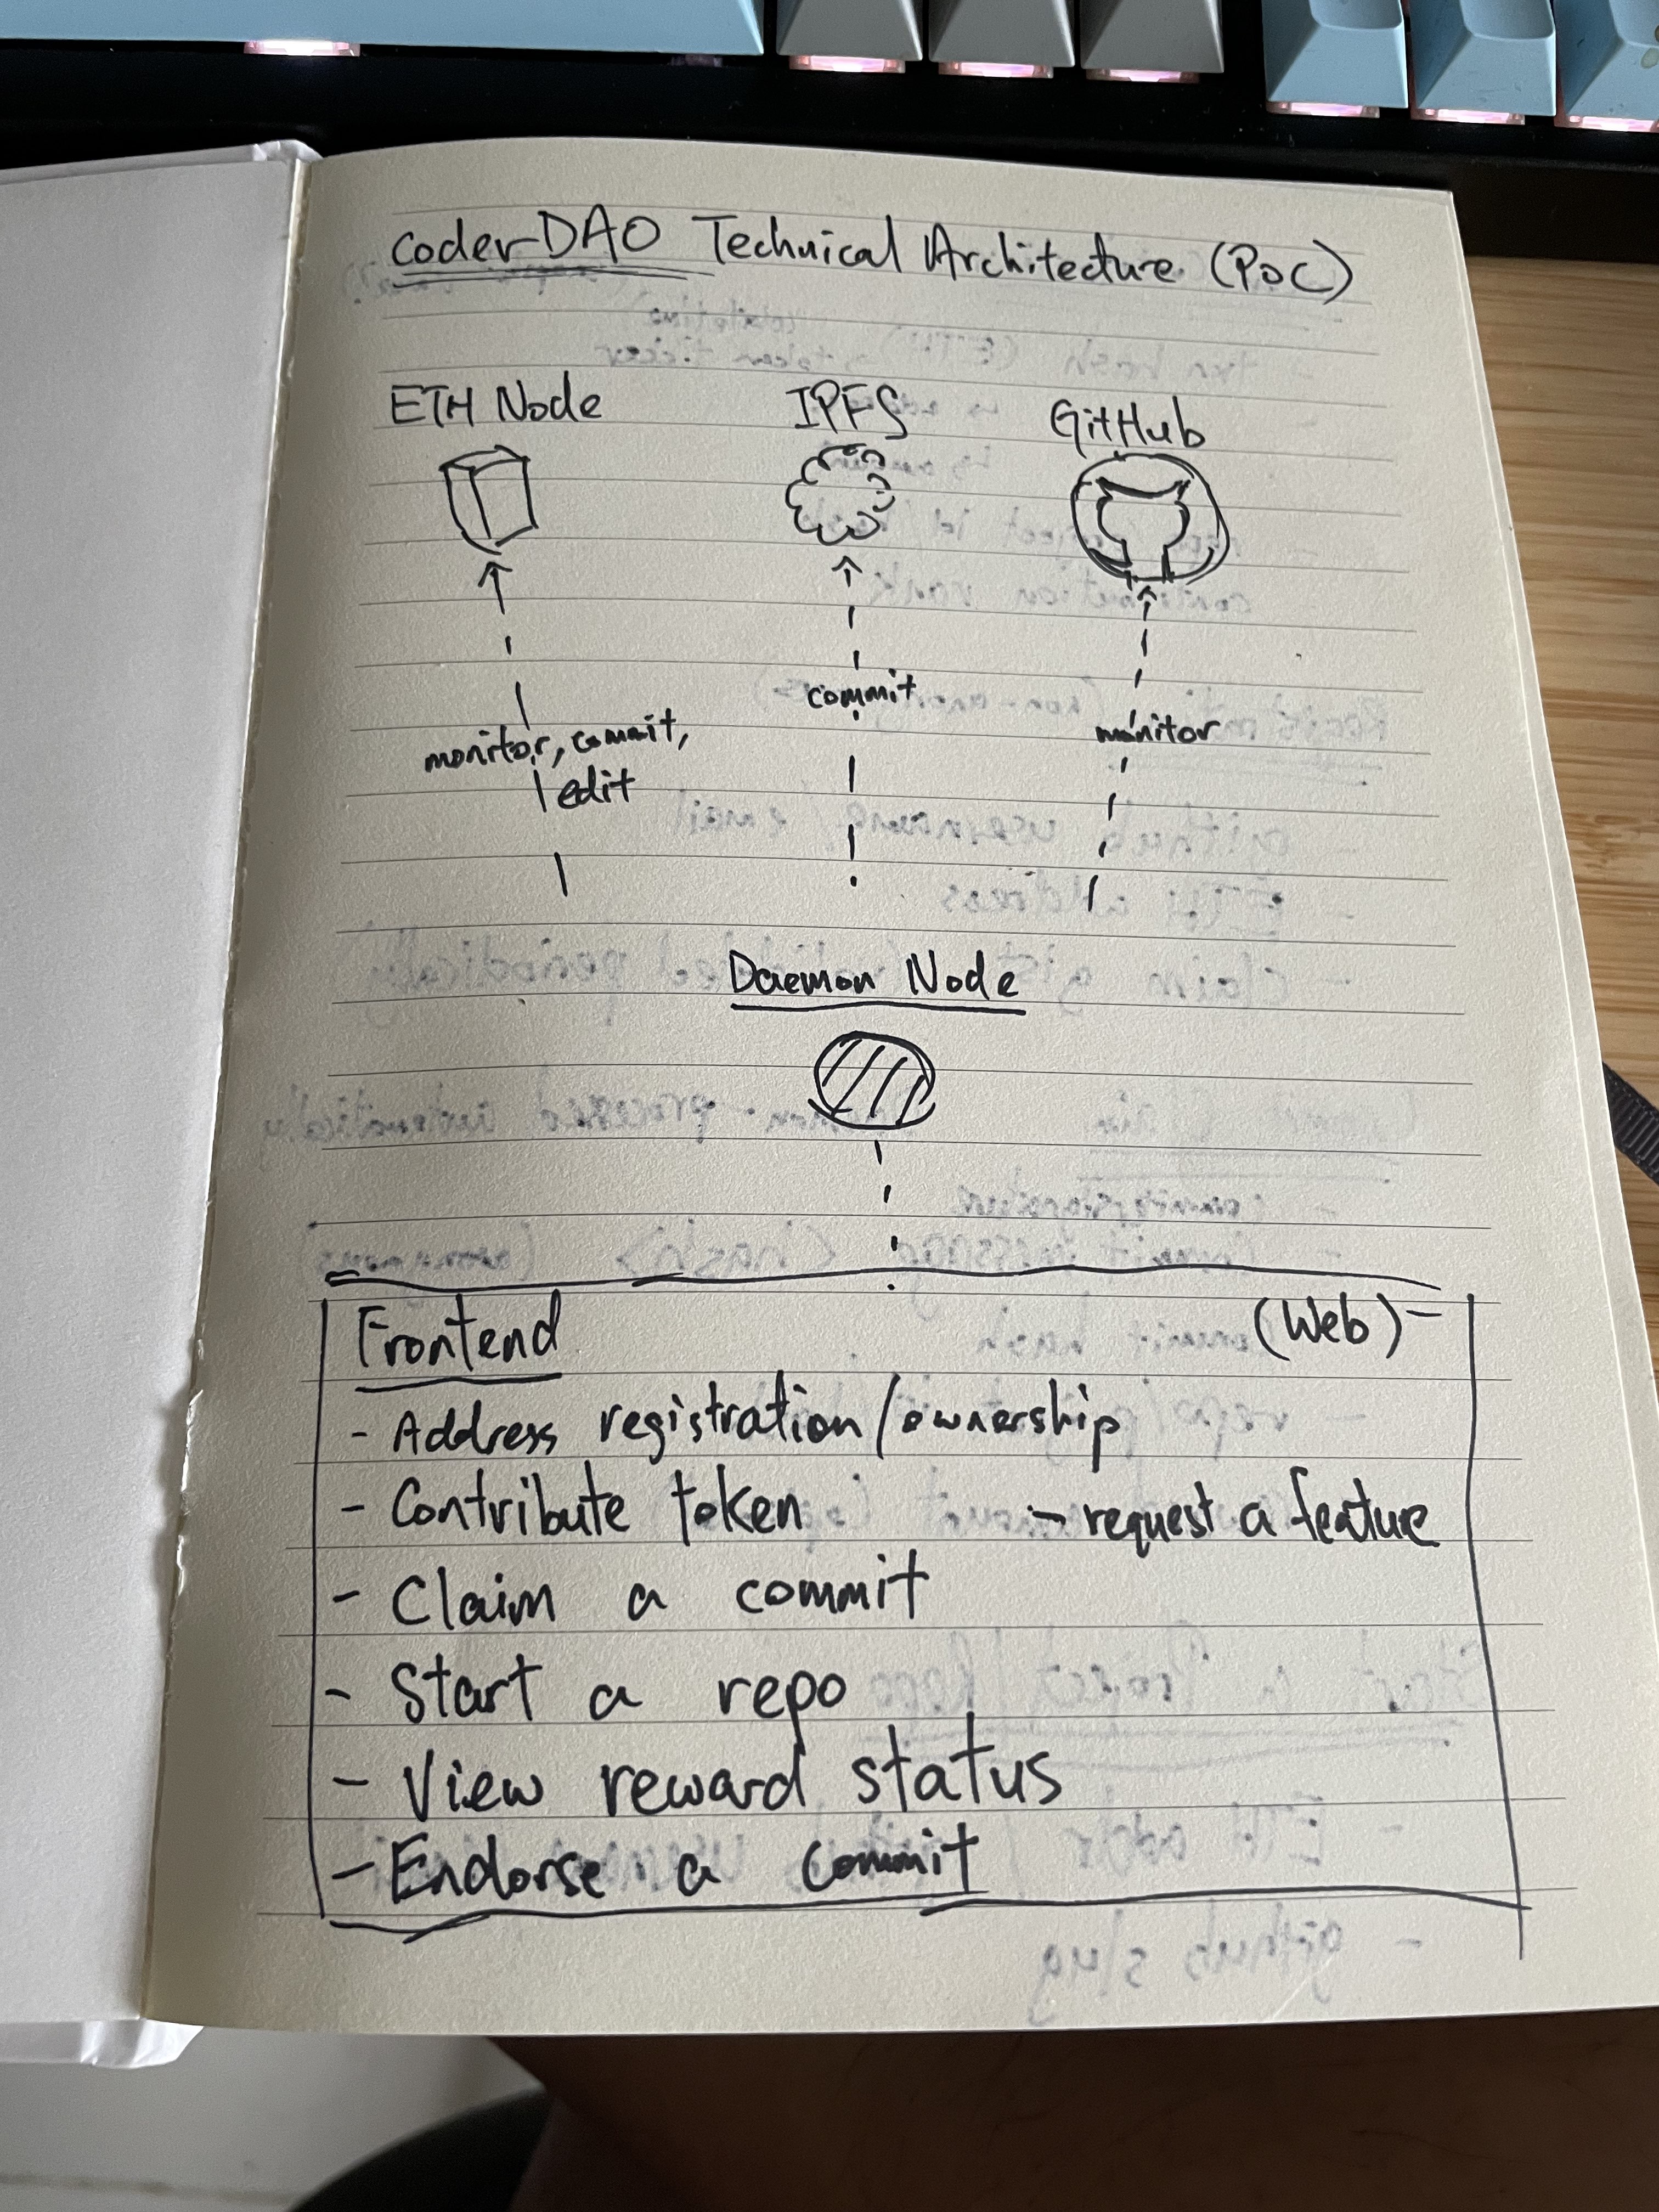 coderDAO Technical Architecture (PoC)
ETH Node
IPFS
GitHub
monitor, commit,
edit
commit
monitor
Daemon Node
Frontend
(Web)
- Address registration/ownership
- Contribute token
- request a feature
- Claim a commit
- Start a repo
- View reward status
- Endorse a commit
- github slug